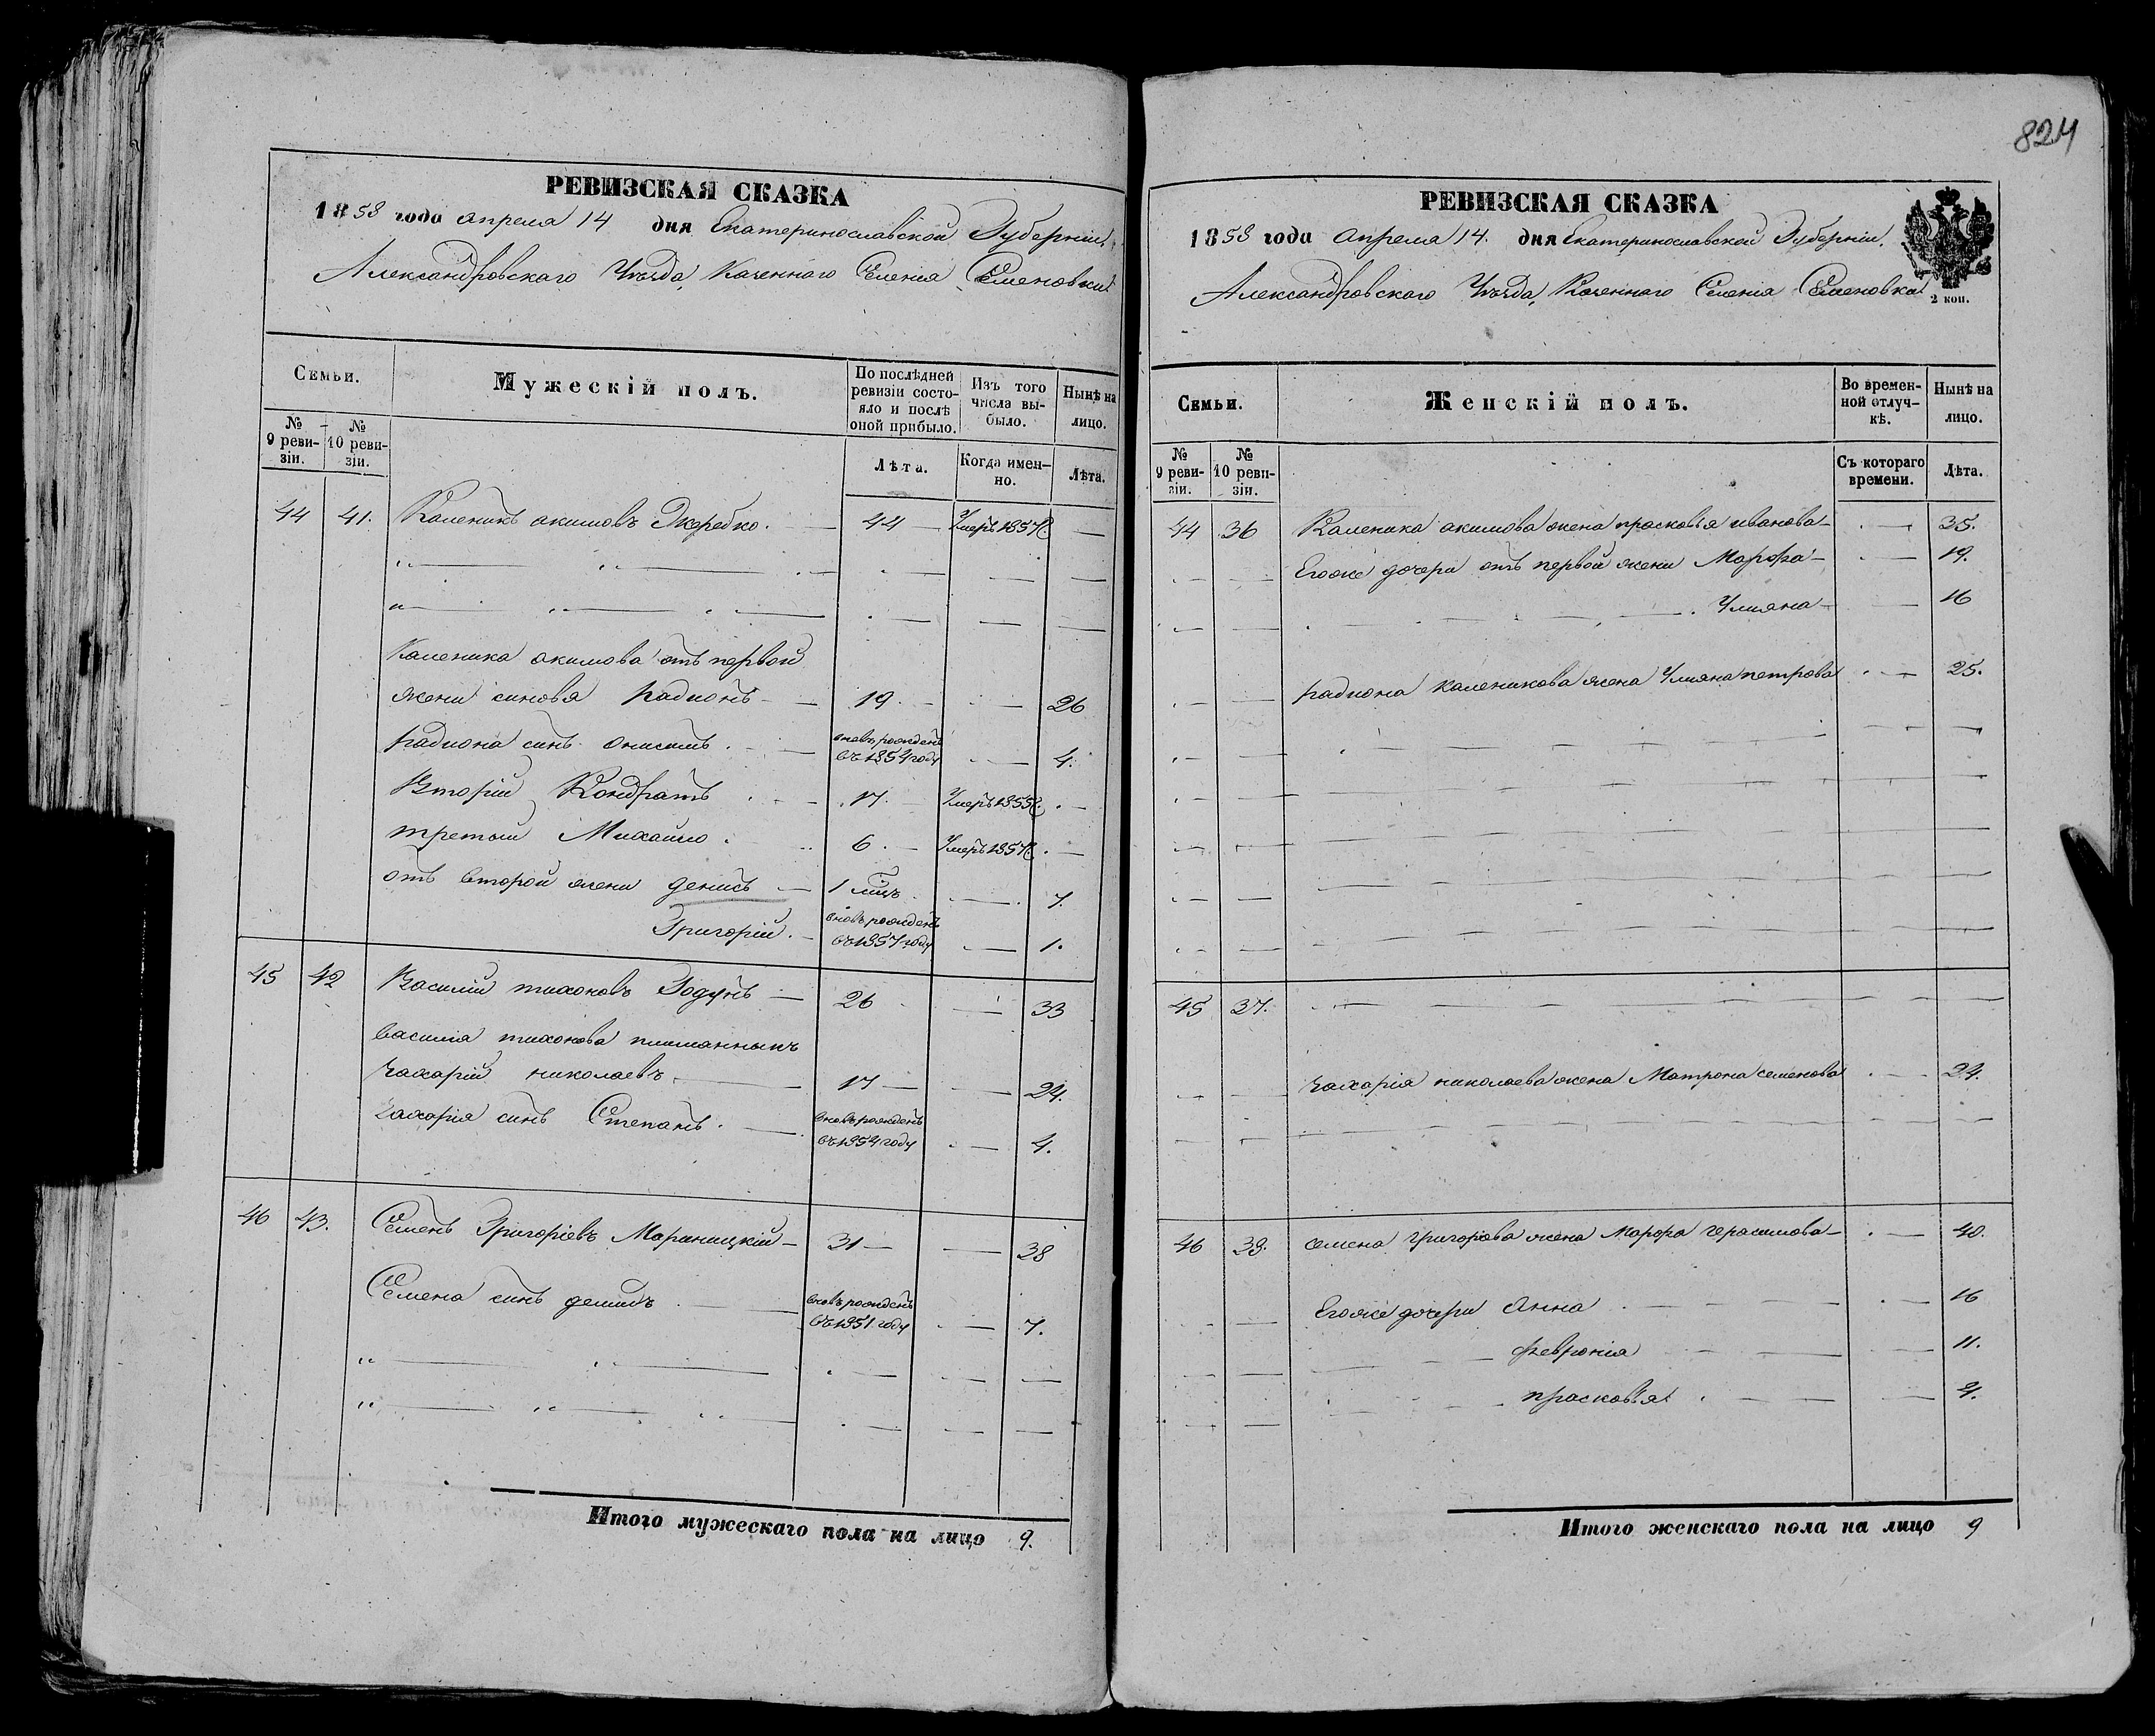 РЕВИЗСКАЯ СКАЗКА
1858 года апреля 14 дня Екатеринославской Губерніи,
Александровскаго Уѣзда, Казеннаго Селенія Семеновки
Семьи.
Мужескій полъ.
По послѣдней ревизіи состояло и послѣ оной прибыло.
Изъ того числа выбыло.
Нынѣ на лицо.
№ 9 ревизіи.
№ 10 ревизіи.
Лѣта.
Когда именно.
Лѣта.
44 41. Каленикъ акимовъ Жеребко. 44 Умеръ 1857 г.
Каленика акимова отъ первой
жени синовя радионъ 19. 26
радиона синъ онисимъ. вновь рожденъ въ 1854 году 4.
Вторій Кондратъ 17. Умеръ 1855 г.
третій Михайло. 6. Умеръ 1857 г.
отъ второй жени денисъ 1 мѣц 7.
Григорій. вновь рожденъ въ 1857 году 1.
45 42 Василій тихоновъ Годунъ 26 33
василія тихонова племянникъ
захарій николаевъ 17 24.
захарія синъ Степанъ. вновь рожденъ въ 1854 году 4.
46 43. Семенъ Григоріевъ Мариницкій 31 38
Семена синъ демидъ вновь рожденъ въ 1851 году 7.
Итого мужескаго пола на лицо 9.
824
РЕВИЗСКАЯ СКАЗКА
1858 года апреля 14. дня Екатеринославской Губерніи.
Александровскаго Уѣзда, Казеннаго Селенія Семеновки
2 коп.
Семьи.
Женскій полъ.
Во временной отлучкѣ.
Нынѣ на лицо.
№ 9 ревизіи.
№ 10 ревизіи.
Съ котораго времени.
Лѣта.
44 36 Каленика акимова жена прасковья иванова 35.
Егоже дочери отъ первой жени Марфа 19.
Улияна 16
радиона каленикова жена Улияна петрова 25.
45 37.
захарія николаева жена Матрона семенова 24.
46 38. семена григорова жена Марфа герасимова 40.
Егоже дочери Анна 16
февронія 11.
прасковья 4.
Итого женскаго пола на лицо 9